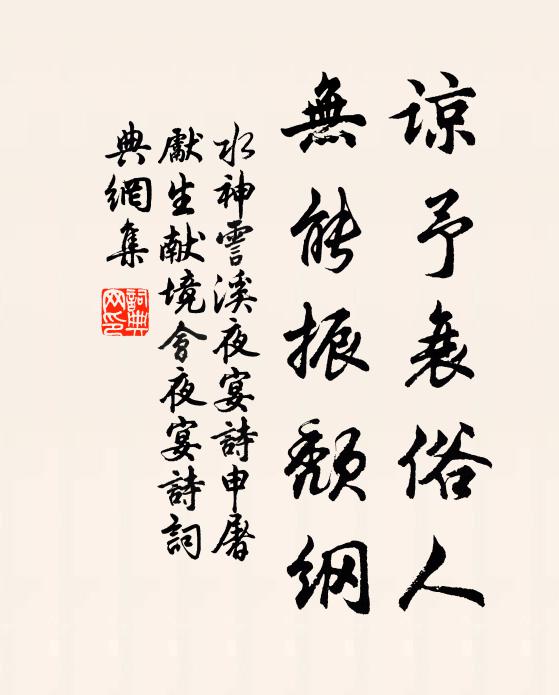 谅予衰俗人
無能振頹纲
水神霅溪夜宴詩申屠
獻生献境會夜宴詩詞
典網集
詞典
网印